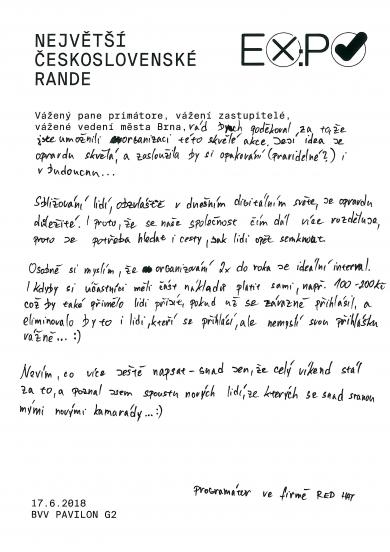 NEJVĚTŠÍ
ČESKOSLOVENSKÉ
RANDE
EX:PO
Vážený pane primátore, vážení zastupitelé,
vážené vedení města Brna, rád bych poděkoval za to, že
jste umožnili organizaci této skvělé akce. Její idea je
opravdu skvělá, a zasloužila by si opakování (pravidelné?) i
v budoucnu...
Sbližování lidí, obzvláště v dnešním digitálním světe, je opravdu
důležité. I proto, že se naše společnost čím dál více rozděluje,
proto je potřeba hledat i cesty, jak lidi opět semknout.
Osobně si myslím, že organizování 2x do roka je ideální interval.
I kdyby si účastníci měli část nákladů platit sami, např. 100-200Kč
což by také přimělo lidi přijít, pokud už se závazně přihlásil, a
eliminovalo by to i lidi, kteří se přihlásí, ale nemyslí svou přihlášku
vážně... :)
Nevím, co více ještě napsat - snad jen, že celý víkend stál
za to, a poznal jsem spoustu nových lidí, ze kterých se snad stanou
mými novými kamarády... :)
programátor ve firmě RED HAT
17.6.2018
BVV PAVILON G2